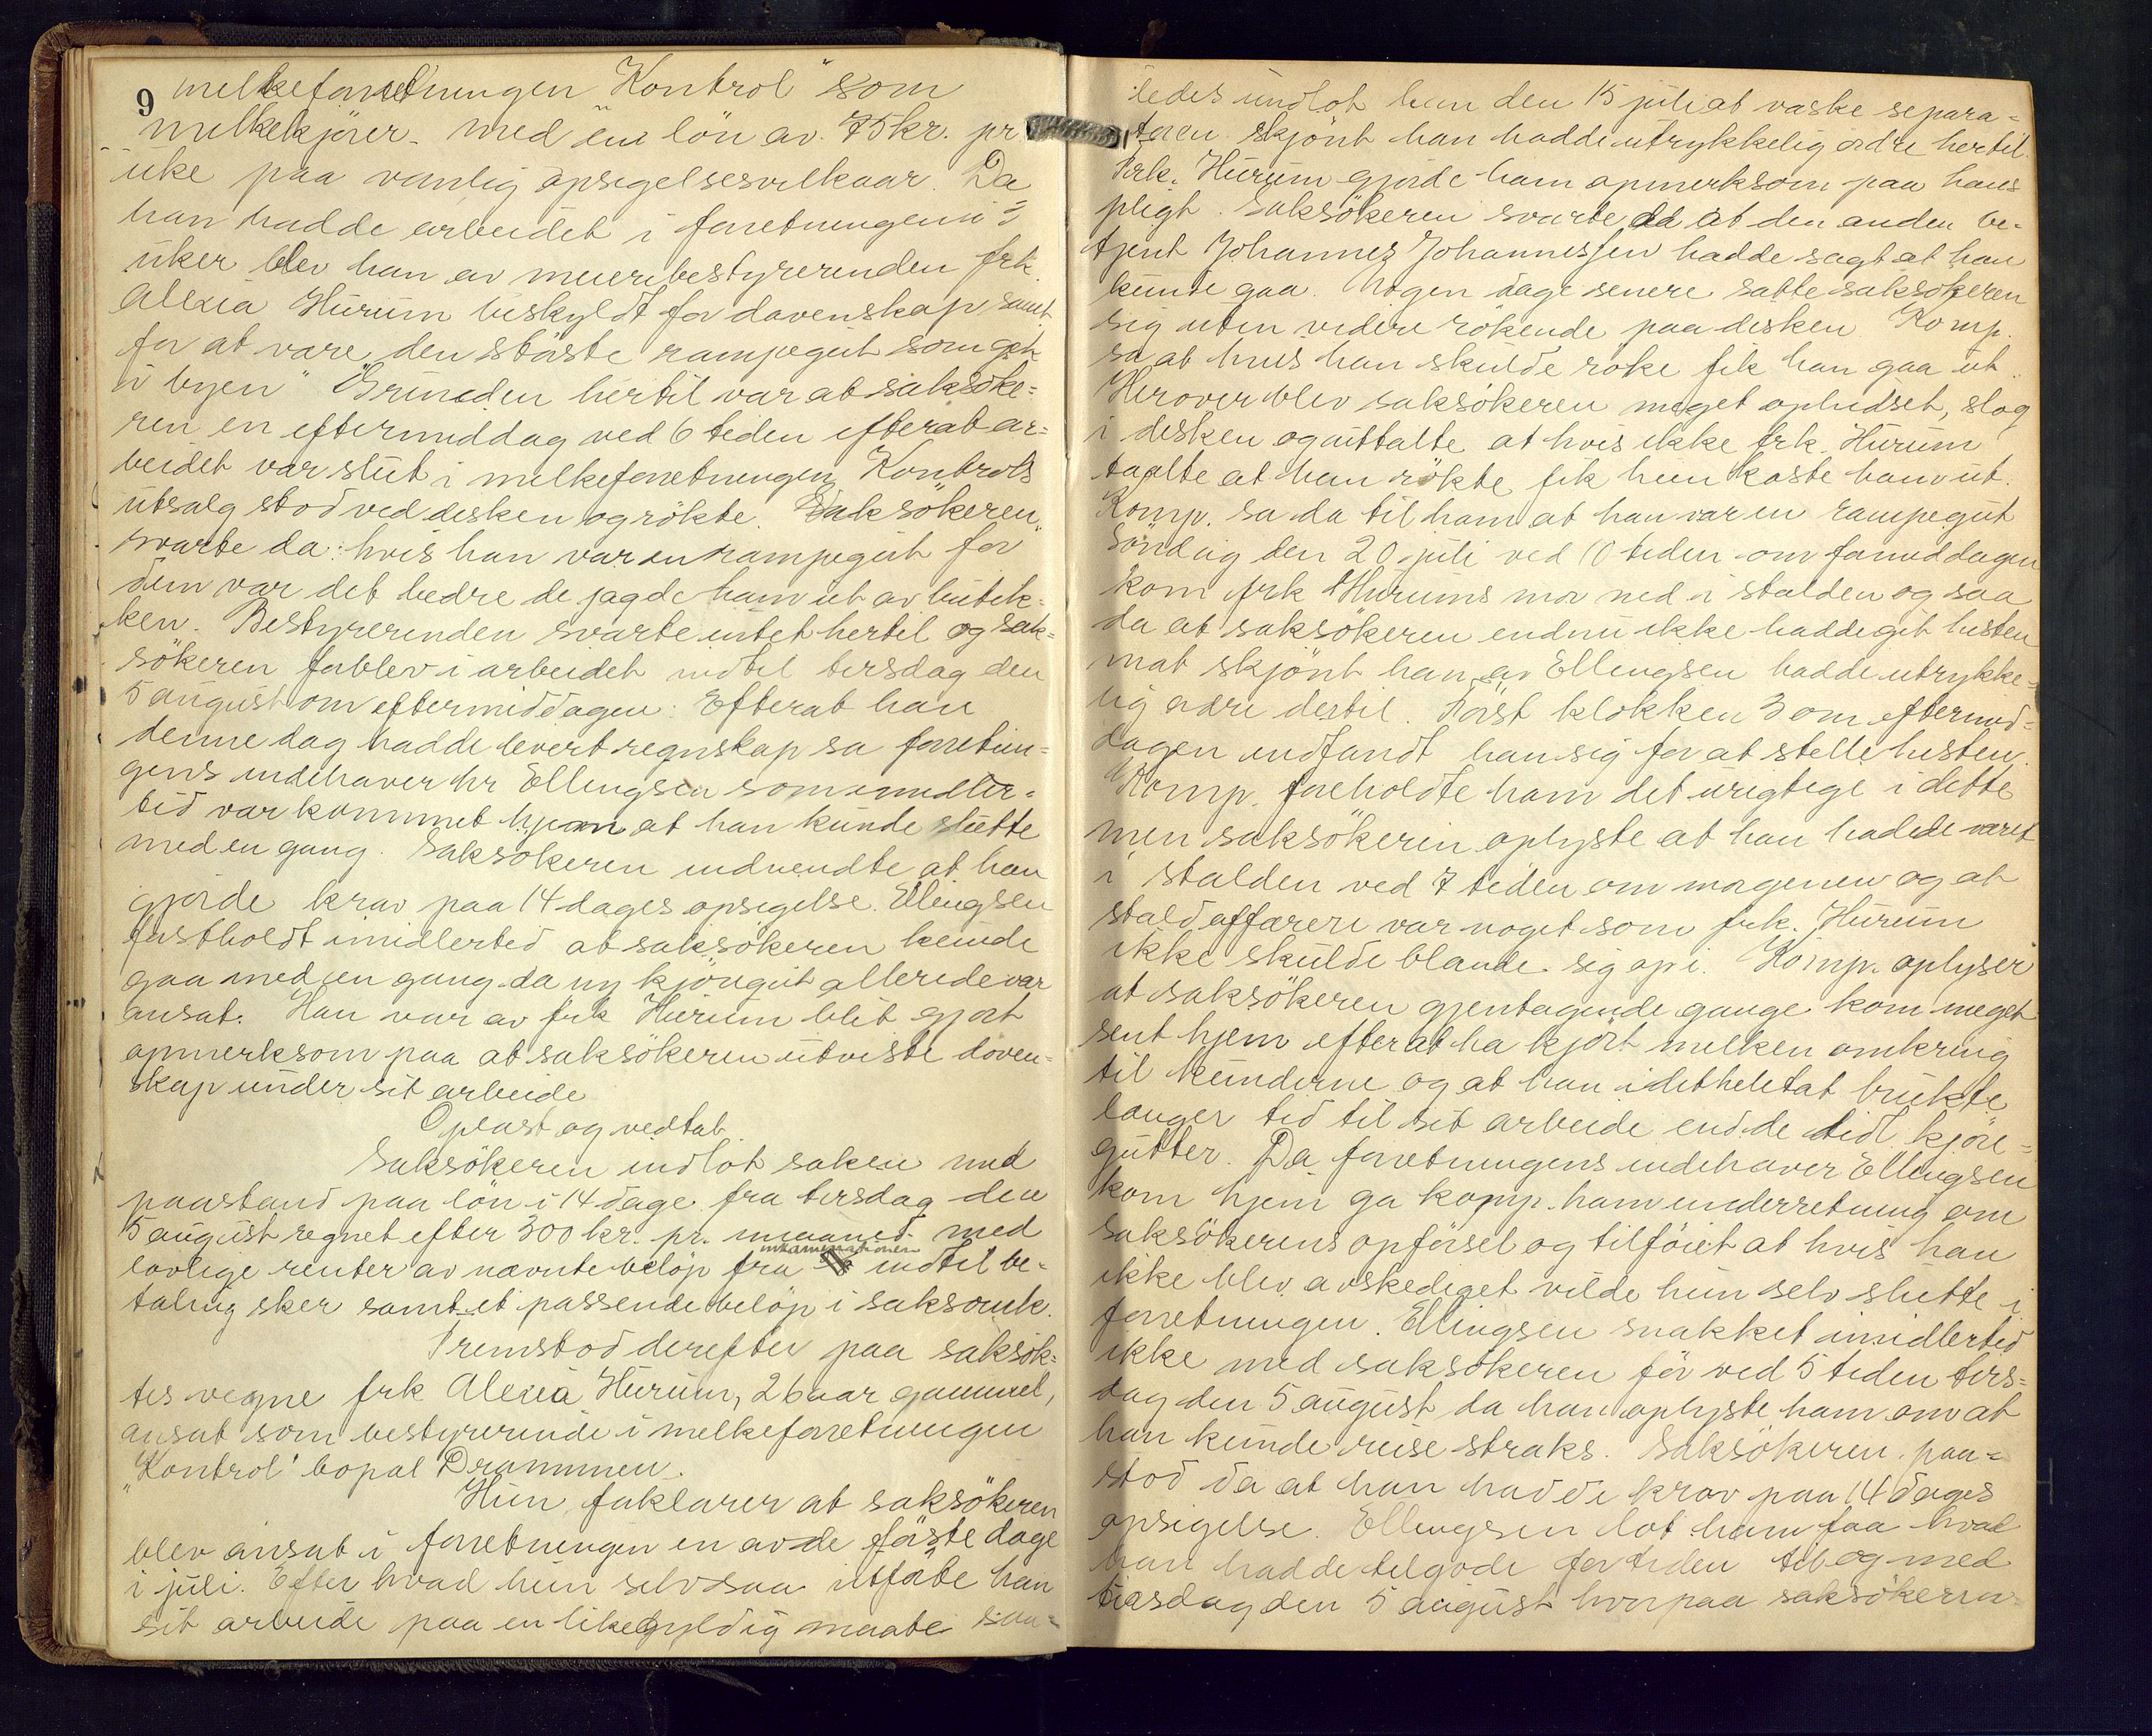 9
melkeforretningen "Kontrol" som
melkekjörer. med en lön av 75 kr. pr
uke paa vanlig opsigelsesvilkaar. Da
han hadde arbeidet i forretningen i 2
uker blev han av meieribestyrerinden frk.
Alexia Hurum beskyldt for dovenskap samt
for at være den störste rampegut som gik
i byen" Grunden hertil var at saksöke=
ren en eftermiddag ved 6 tiden efterat ar=
beidet var slut i melkeforretningen Kontrols
utsalg stod ved disken og rökte. Saksökeren
svarte da: hvis han var en rampegut for
dem var det bedre de jagde ham ut av butik=
ken. Bestyrerinden svarte intet hertil og sak=
sökeren forblev i arbeidet indtil tirsdag den
5 august om eftermiddagen. Efterat han
denne dag hadde levert regnskap sa forretnin=
gens indehaver hr Ellingsen som imidler=
tid var kommet hjem at han kunde slutte
med en gang. Saksökeren indvendte at han
gjorde krav paa 14 dages opsigelse. Ellingsen
fastholdt imidlertid at saksökeren kunde
gaa med en gang da ny kjöregut allerede var
ansat. Han var av frk Hurum blit gjort
opmerksom paa at saksökeren utviste doven=
skap under sit arbeide
Oplæst og vedtat
Saksökeren indlot saken med
paastand paa lön i 14 dage fra tirsdag den
5 august regnet efter 300 kr. pr. maaned med
inkaminationen
lovlige renter av nævnte belöp fra indtil be=
taling sker samt et passende belöp i saksomk.
Fremstod derefter paa saksök=
tes vegne frk Alexia Hurum, 26 aar gammel,
ansat som bestyrerinde i melkeforretningen
"Kontrol" bopæl Drammen.
Hun forklarer at saksökeren
blev ansat i forretningen en av de förste dage
i juli. Efter hvad hun selv saa utförte han
sit arbeide paa en likegyldig maate saa=
ledes undlot han den 15 juli at vaske separa=
toren skjönt han hadde utrykkelig ordre hertil.
Frk. Hurum gjorde ham opmerksom paa hans
pligt. Saksökeren svarte da at den anden be=
tjent Johannes Johannessen hadde sagt at han
kunde gaa. Nogen dage senere satte saksökeren
sig uten videre rökende paa disken. Komp.
sa at hvis han skulde röke fik han gaa ut.
Herover blev saksökeren meget ophidset, slog
i disken og uttalte at hvis ikke frk. Hurum
taalte at han rökte fik hun kaste ham ut.
Komp. sa da til ham at han var en rampegut
Söndag den 20 juli ved 10 tiden om formiddagen
kom frk Hurums mor ned i stalden og saa
da at saksökeren endnu ikke hadde git hesten
mat skjönt han av Ellingsen hadde utrykke=
lig ordre dertil. Först klokken 3 om eftermid=
dagen indfandt han sig for at stelle hesten.
Komp. foreholdte ham det urigtige i dette
men saksökeren oplyste at han hadde været
i stalden ved 7 tiden om morgenen og at
staldaffærer var noget som frk. Hurum
ikke skulde blande sig op i. Komp. oplyser
at saksökeren gjentagende gange kom meget
sent hjem efterat ha kjört melken omkring
til kunderne og at han i det hele tat brukte
langer tid til sit arbeide end de tidl. kjöre=
gutter. Da forretningens indehaver Ellingsen
kom hjem ga komp. ham underretning om
saksökerens opförsel og tilföiet at hvis han
ikke blev avskediget vilde hun selv slutte i
forretningen. Ellingsen snakket imidlertid
ikke med saksökeren för ved 5 tiden tirs=
dag den 5 august da han oplyste ham om at
han kunde reise straks. Saksökeren paa=
stod da at han hadde krav paa 14 dages
opsigelse. Ellingsen lot ham faa hvad
han hadde tilgode for tiden til og med
tirsdag den 5 august hvorpaa saksökeren